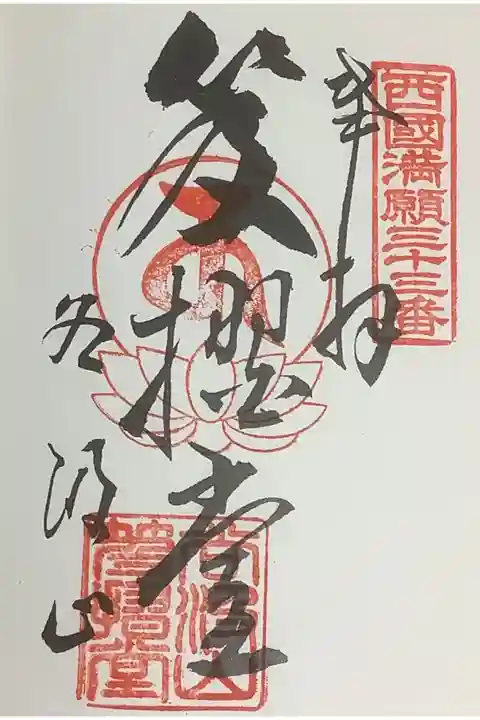 西國満願三十三番
奉拝
笈摺堂
谷汲山
谷汲山